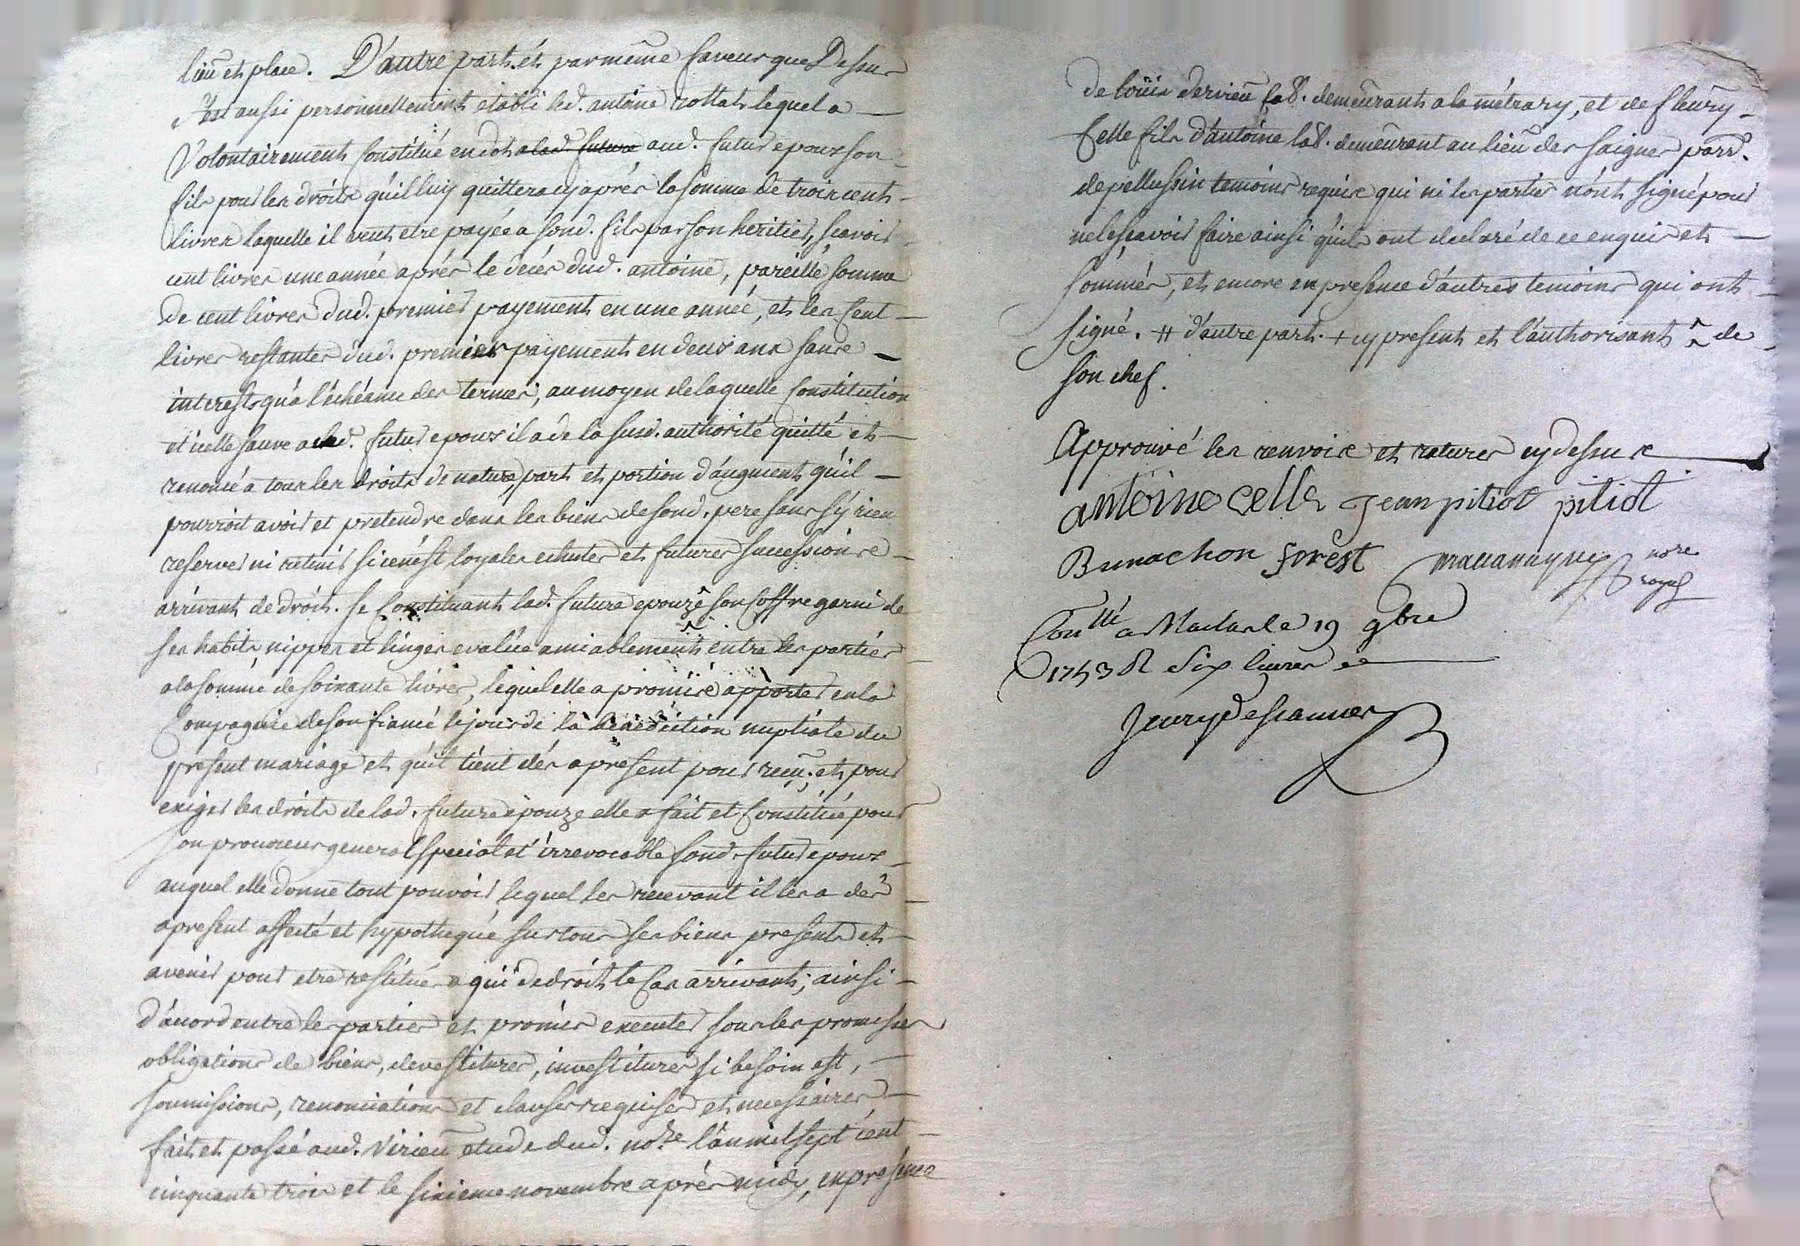 lieu et place. D'autre part. et par même faveur que Dessus
s'est aussi personnellement etabli led. antoine rottat lequel a
Volontairement Constitué en dot a lad. future aud. futur epoux son
fils pour les droits qu'il luy quittera cy aprés la somme de trois cents
livres laquelle il veut etre payée a sond. fils par son heritier, scavoir
cent livres une année aprés le decés dud. antoine, pareille somme
de cent livres dud. premier payement en une année, et les cent
livres restantes dud. premier payement en deux ans sans
interests qu'a l'échéance des termes, au moyen de laquelle Constitution
et icelle sauve aud. futur epoux il a de la susd. authorité quitté et
renoncé a tous les droits de nature, part et portion d'augment qu'il
pourroit avoir et pretendre dans les biens de sond. pere sans s'y rien
reserver ni retenir si ce n'est loyales echutes et futures successions
arrivant de droit. Se Constituant lad. future epouze son Coffre garni de
ses habits, nippes et linges evalué amiablement entre les parties
a la somme de soixante livres, lequel elle a promis apporter en la
Compagnie de son fiancé le jour de la bénédiction nuptiale du
present mariage et qu'il tient dés a present pour reçu; et pour
exiger les droits de lad. future epouze elle a fait et Constitué pour
son procureur general special et irrevocable sond. futur epoux
auquel elle donne tout pouvoir lequel les recevant il les a dés
a present affecté et hypothequé sur tous ses biens presents et
avenir pour etre restitués a qui de droit le Cas arrivant; ainsi
d'acord entre les parties et promis executer sous les promesses
obligations de biens, devestitures, investitures si besoin est,
soumissions, renonciations et clauses requises et necessaires
fait et passé aud. Virieu etude dud. no.re l'an mil sept cent
cinquante trois et le sixieme novembre aprés midy, en presence
de louis dervieu lab. demeurant a la métrary, et de fleury
Celle fils d'antoine lab. demeurant au lieu des saignes parr.
de pellussin temoins requis qui ni les parties n'ont signé pour
ne le scavoir faire ainsi qu'ils ont declaré de ce enquis et
sommés, et encore en presence d'autres temoins qui ont
signé. # d'autre part. + cy present et l'authorisant ^ de
son chef.
Approuvé les renvois et ratures cy dessus
antoine Celle jean pitiot pitiot
Bunachon forest no.re
royal
Con.llé a Maclas le 19 9bre
1753 R six livres